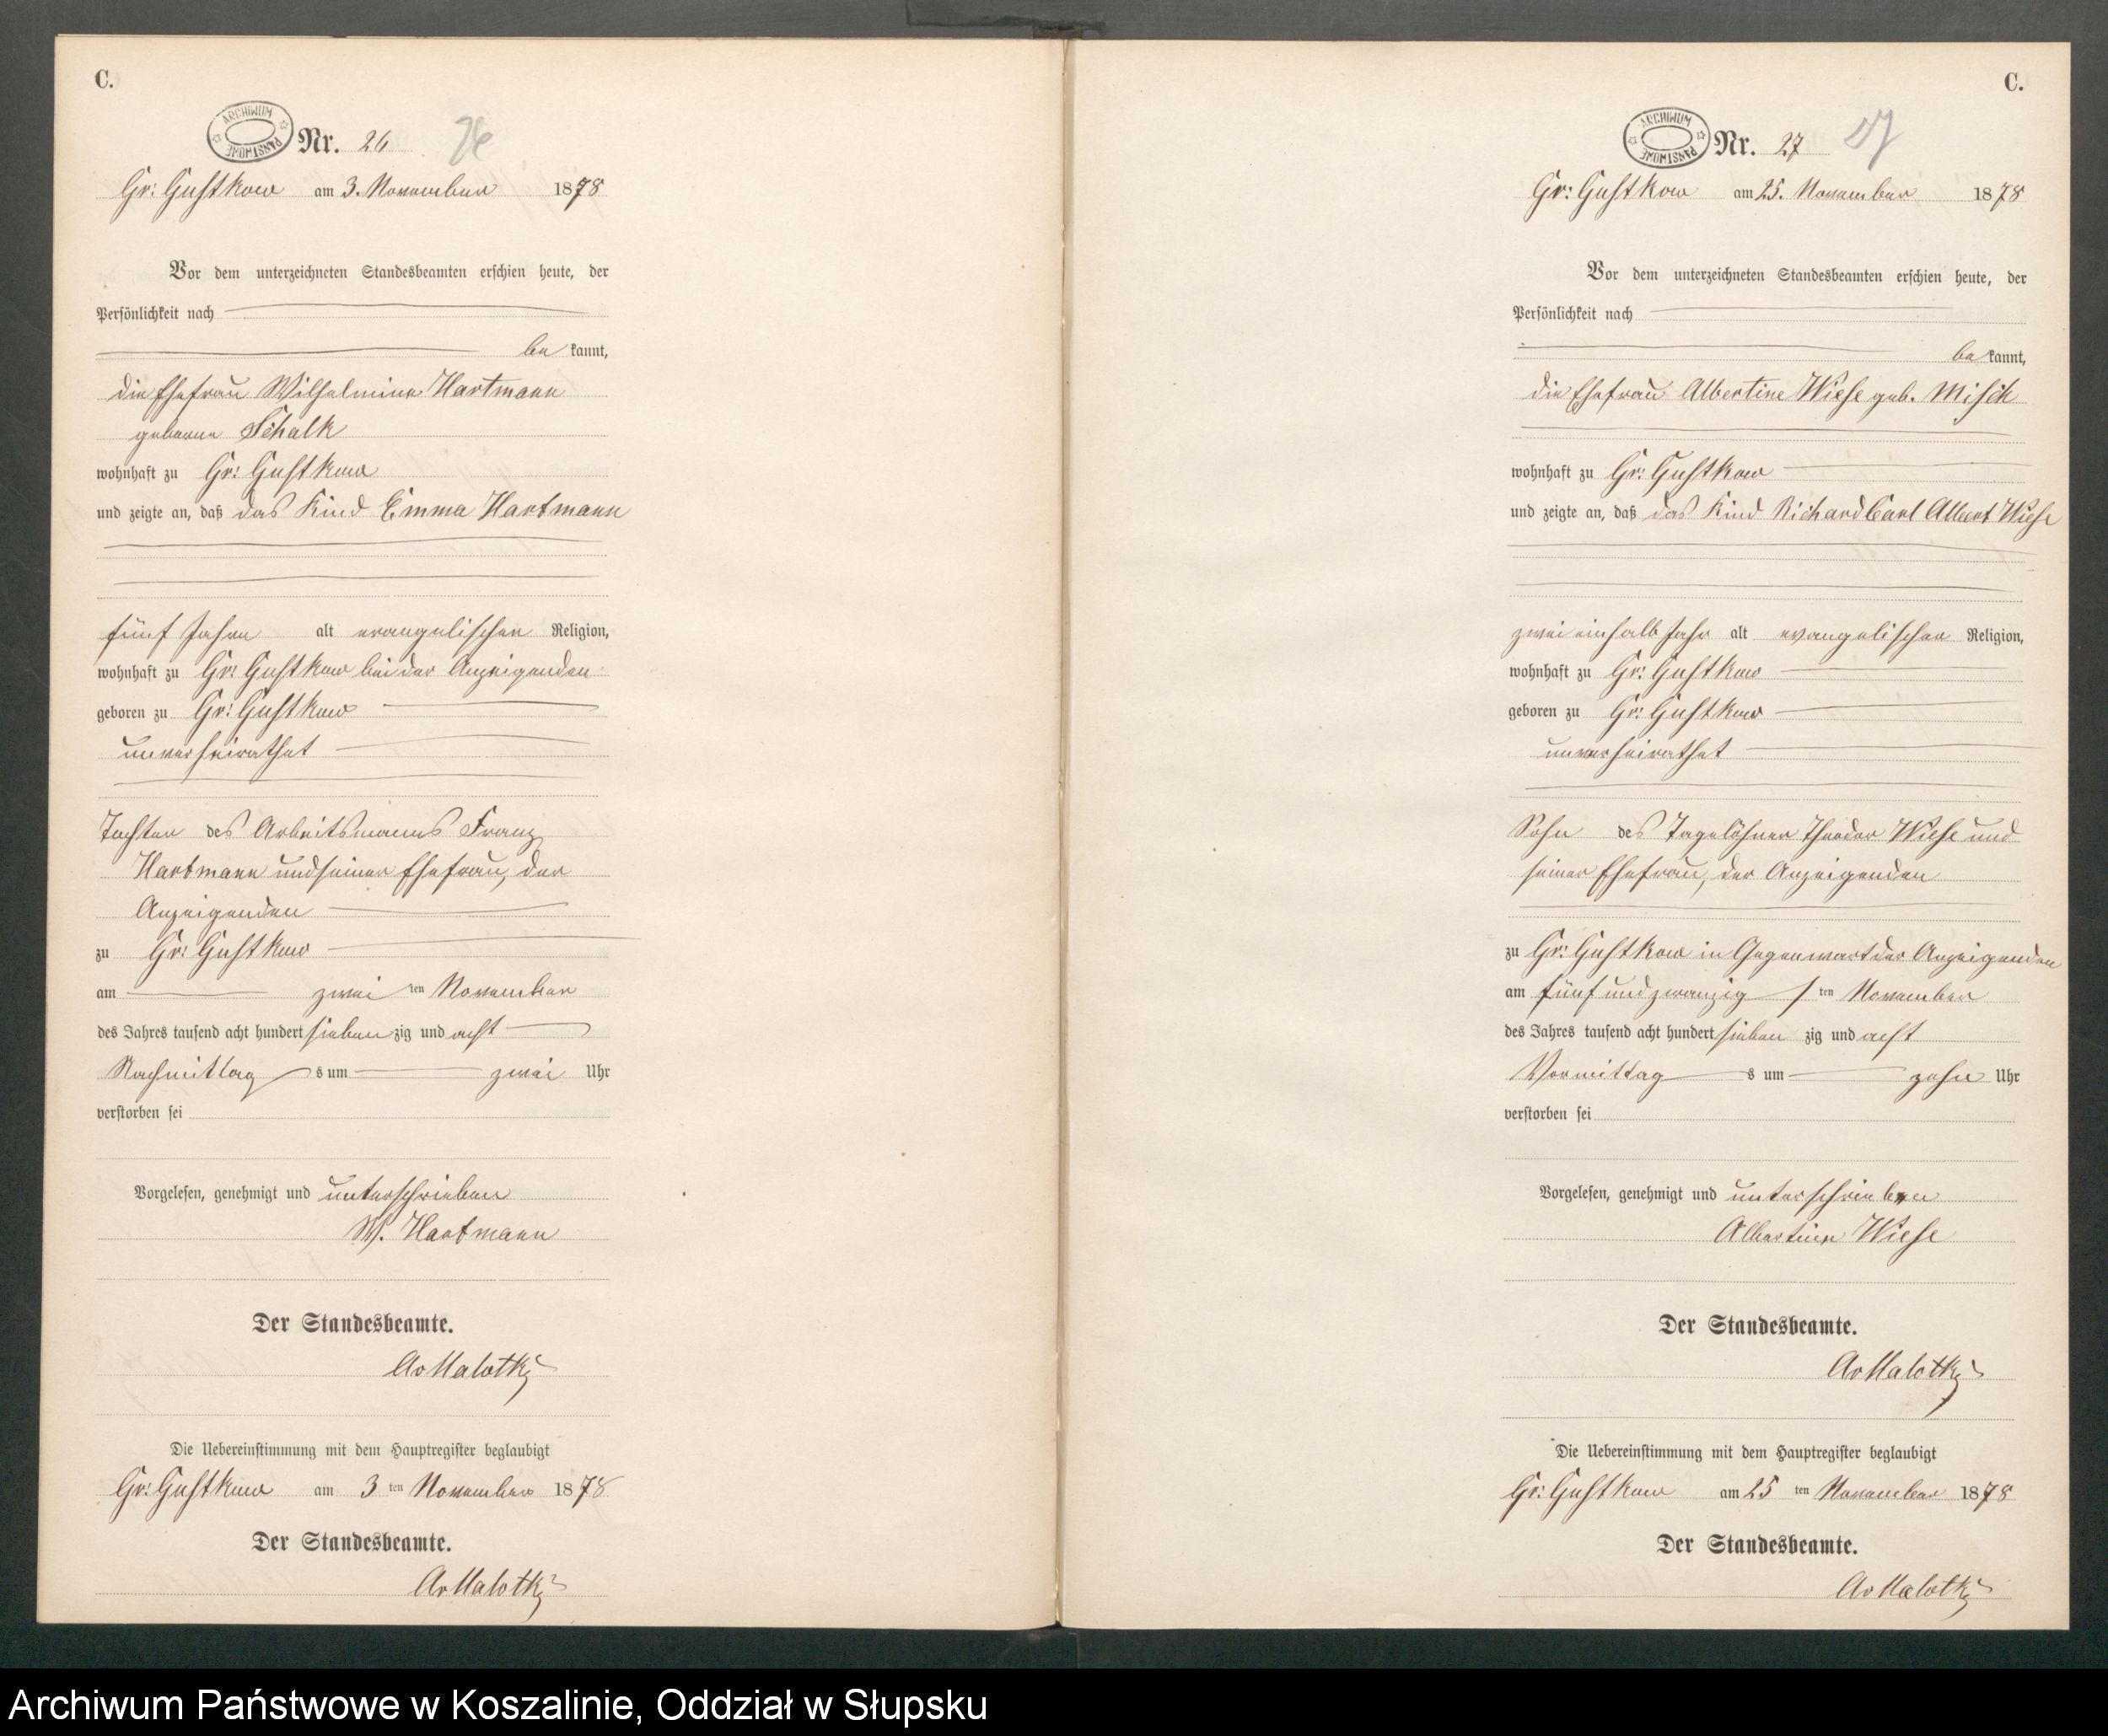 C.
ARCHIWUM PAŃSTWOWE
Nr. 26
Gr: Gustkow am 3. November 1878
Vor dem unterzeichneten Standesbeamten erschien heute, der
Persönlichkeit nach
be kannt,
die Ehefrau Wilhelmine Hartmann
geborne Schalk
wohnhaft zu Gr: Gustkow
und zeigte an, daß das Kind Emma Hartmann
fünf Jahre alt evangelischer Religion,
wohnhaft zu Gr: Gustkow bei der Anzeigenden
geboren zu Gr: Gustkow
unverheirathet
Tochter des Arbeitsmanns Franz
Hartmann und seiner Ehefrau, der
Anzeigenden
zu Gr: Gustkow
am zwei ten November
des Jahres tausend acht hundert sieben zig und acht
Nachmittag s um zwei Uhr
verstorben sei
Vorgelesen, genehmigt und unterschrieben
W. Hartmann
Der Standesbeamte.
AvMalotki
Die Uebereinstimmung mit dem Hauptregister beglaubigt
Gr: Gustkow am 3 ten November 1878
Der Standesbeamte.
AvMalotki
C.
ARCHIWUM PAŃSTWOWE
Nr. 27 27
Gr: Gustkow am 25. November 1878
Vor dem unterzeichneten Standesbeamten erschien heute, der
Persönlichkeit nach
be kannt,
die Ehefrau Albertine Wiese geb. Misch
wohnhaft zu Gr: Gustkow
und zeigte an, daß das Kind Richard Carl Albert Wiese
zwei einhalb Jahr alt evangelischer Religion,
wohnhaft zu Gr: Gustkow
geboren zu Gr: Gustkow
unverheirathet
Sohn des Tagelöhner Theodor Wiese und
seiner Ehefrau, der Anzeigenden
zu Gr: Gustkow in Gegenwart der Anzeigenden
am fünf und zwanzig s ten November
des Jahres tausend acht hundert sieben zig und acht
Vormittag s um zehn Uhr
verstorben sei
Vorgelesen, genehmigt und unterschrieben
Albertine Wiese
Der Standesbeamte.
AvMalotki
Die Uebereinstimmung mit dem Hauptregister beglaubigt
Gr: Gustkow am 25 ten November 1878
Der Standesbeamte.
AvMalotki
Archiwum Państwowe w Koszalinie, Oddział w Słupsku